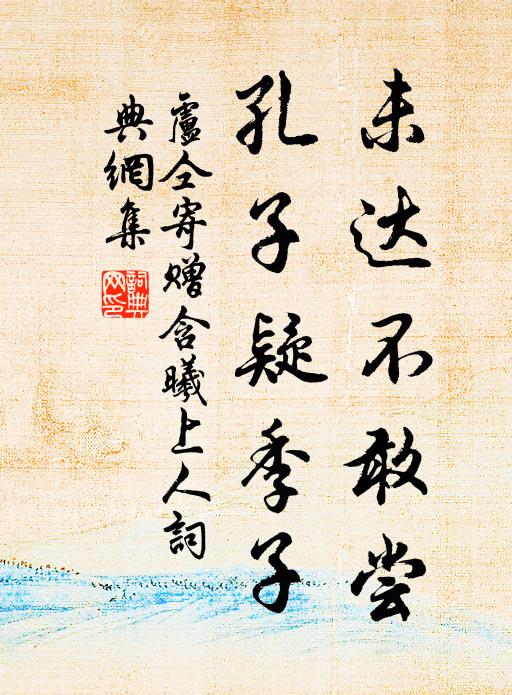 未达不敢尝
孔子疑季子
盧仝寄赠含曦上人詞
典網集
詞典网印